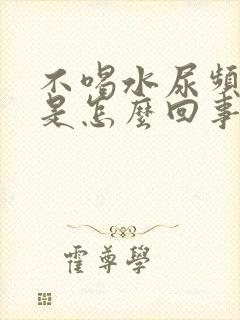 不喝水尿頻
是怎麼回事
霍尊學